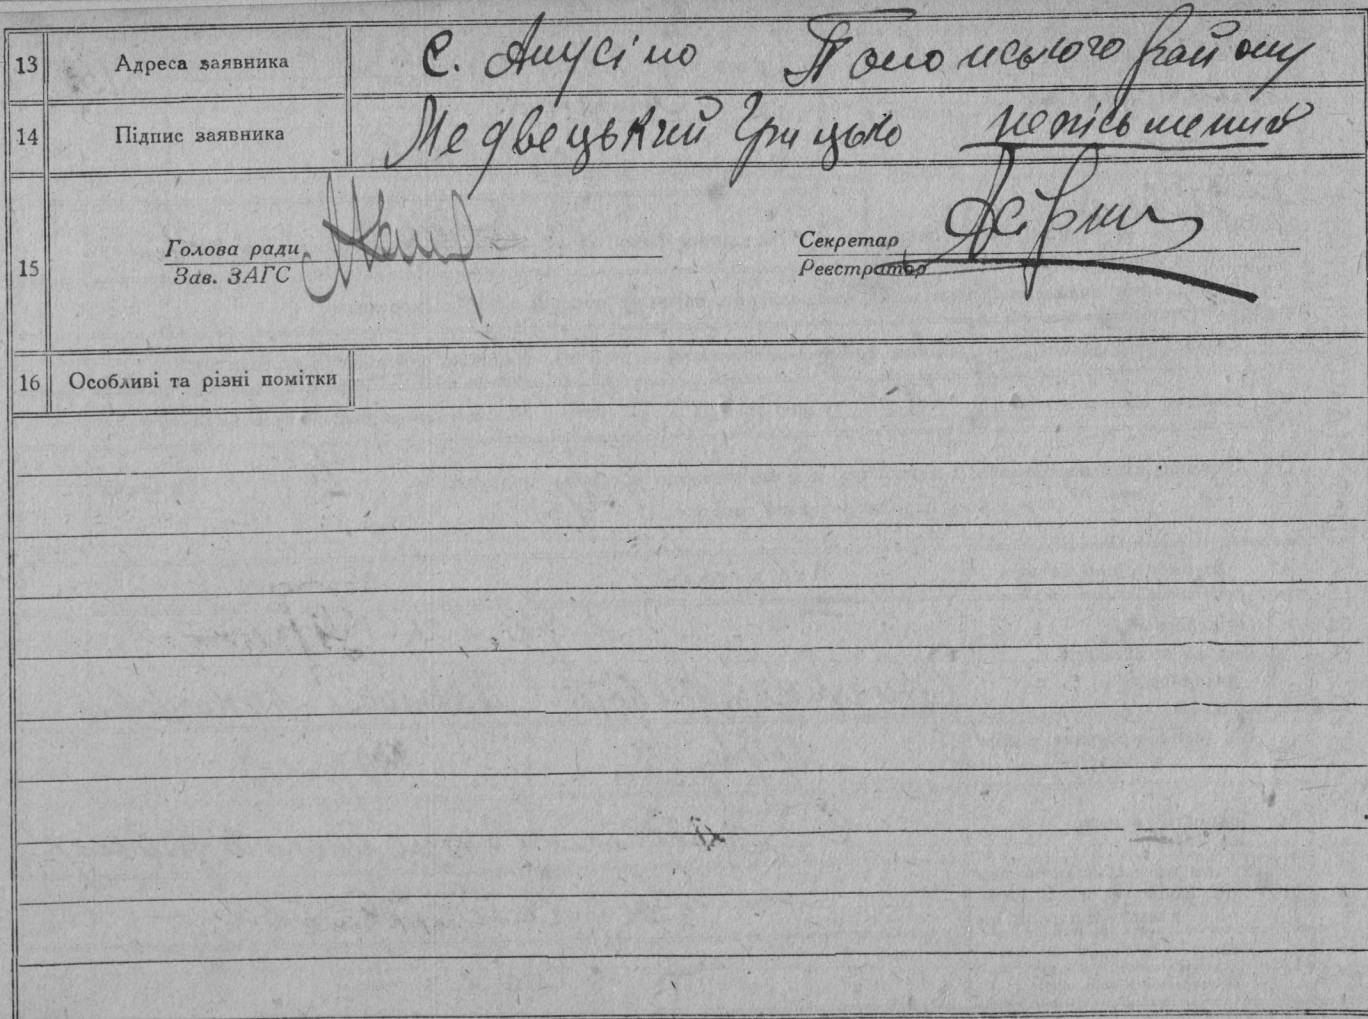 13 Адреса заявника с. Анусіно Полонського району
14 Підпис заявника Медвецький Грицько неписьмений
15 Голова ради Секретар
Зав. ЗАГС Реєстратор
16 Особливі та різні помітки